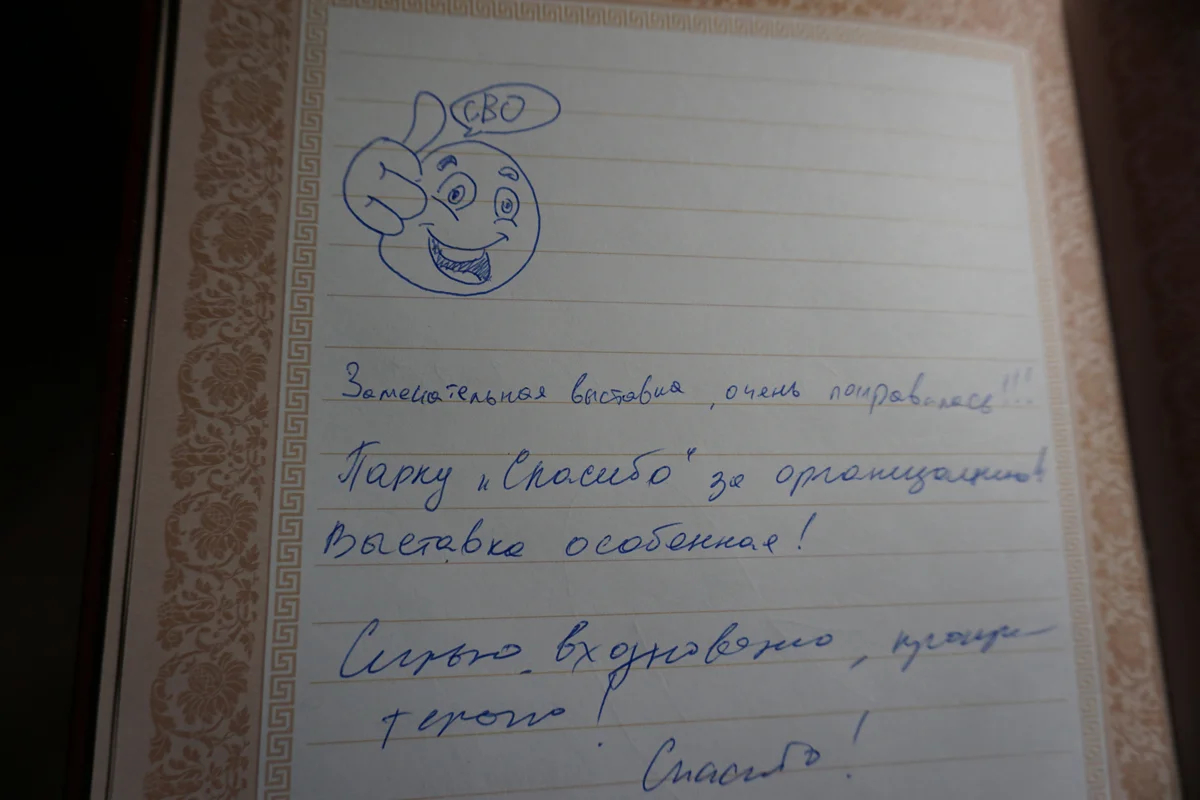 СВО
Замечательная выставка, очень понравилась!!!
Парку "Спасибо" за организацию!
Выставка особенная!
Сильно, вдохновенно,
Спасибо!